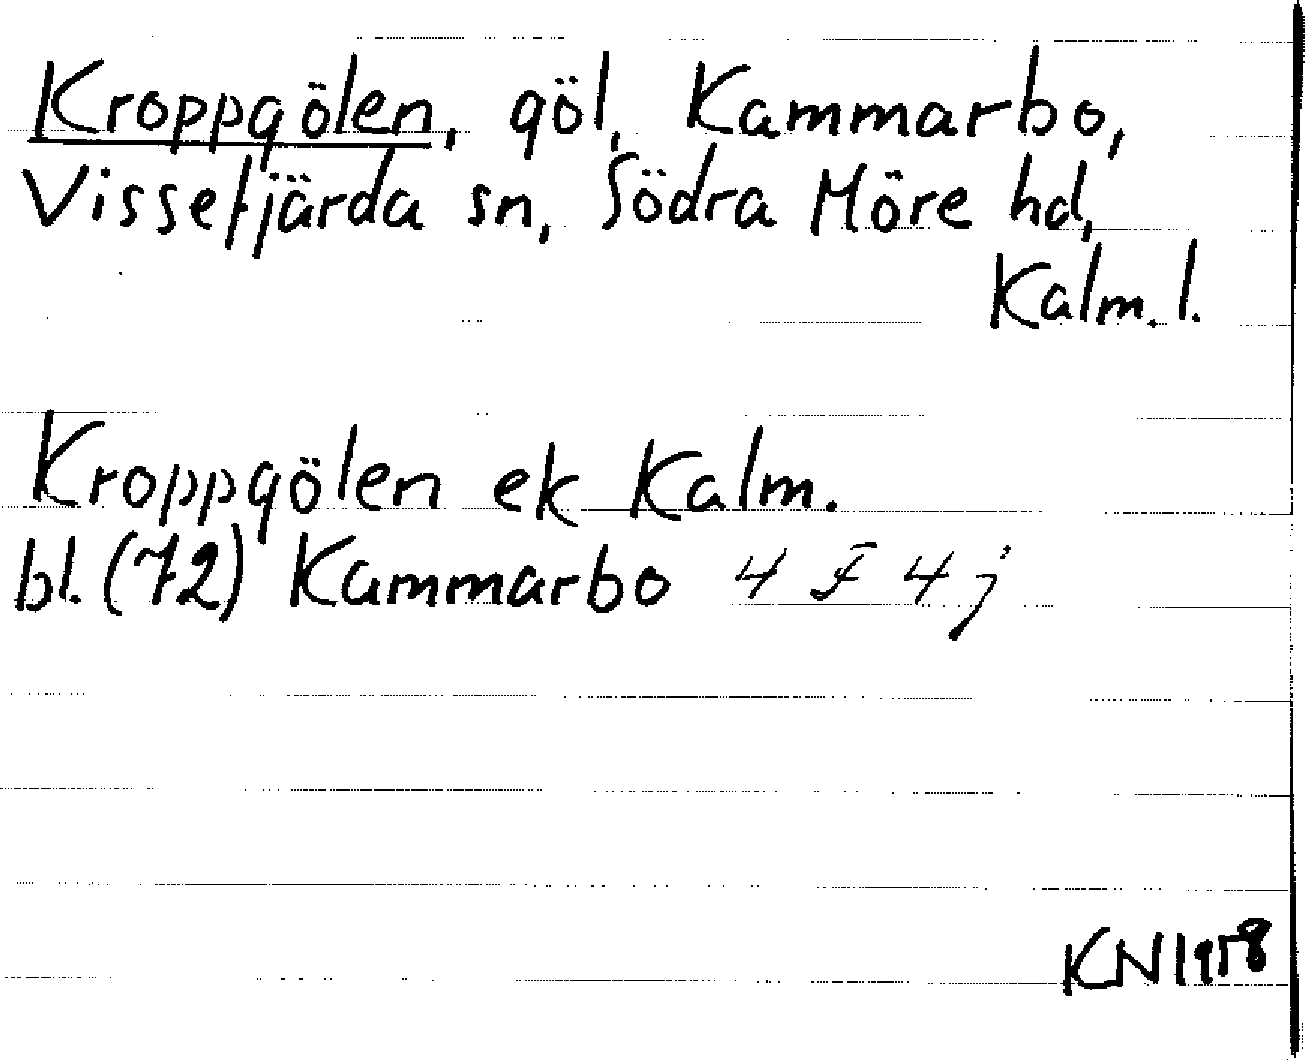 Kroppgölen, göl, Kammarbo,
Vissefjärda sn, Södra Möre hd,
Kalm. l.
Kroppgölen ek Kalm.
bl. (72) Kammarbo 4 F 4 j
KN 1958